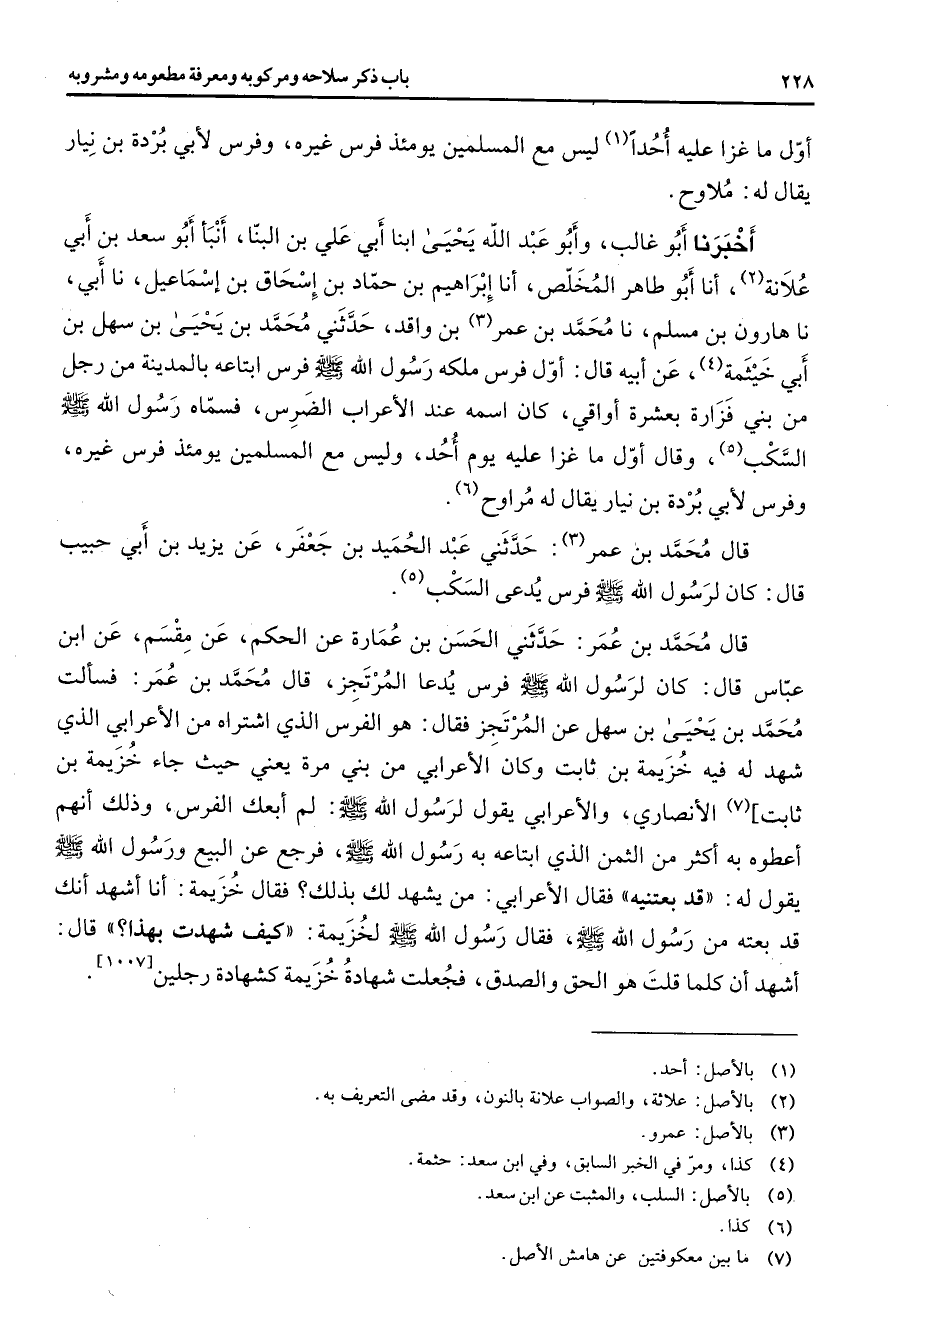 ٢٢٨ باب ذكر سلاحه ومركوبه ومعرفة مطعومه ومشروبه
أوّل ما غزا عليه أُحُداً(١) ليس مع المسلمين يومئذ فرس غيره، وفرس لأبي بُرْدة بن نِيار
يقال له: مُلاوح.
أَخْبَرَنا أَبُو غالب، وأَبُو عَبْد الله يَحْيَىٰ ابنا أَبي عَلي بن البنّا، أَنْبَأ أَبُو سعد بن أَبي
عُلَانة(٢)، أنا أَبُو طاهر المُخَلّص، أنا إِبْرَاهيم بن حمّاد بن إِسْحَاق بن إسْمَاعيل، نا أَبي،
نا هارون بن مسلم، نا مُحَمَّد بن عمر(٣) بن واقد، حَدَّثَني مُحَمَّد بن يَحْيَىٰ بن سهل بن
أبي خَيْثمة(٤)، عَن أبيه قال: أوّل فرس ملكه رَسُول الله ﷺ فرس ابتاعه بالمدينة من رجل
من بني فَزَارة بعشرة أواقي، كان اسمه عند الأعراب الضَرِس، فسمّاه رَسُول الله ﷺ
السَّكْب(٥)، وقال أوّل ما غزا عليه يوم أُحُد، وليس مع المسلمين يومئذ فرس غيره،
وفرس لأبي بُرْدة بن نيار يقال له مُراوح(٦).
قال مُحَمَّد بن عمر(٣): حَدَّثَني عَبْد الحُميد بن جَعْفَر، عَن يزيد بن أَبي حبيب
قال: كان لرَسُول الله ﷺ فرس يُدعى السَكْب(٥).
قال مُحَمَّد بن عُمَر: حَدَّثَني الحَسَن بن عُمَارة عن الحكم، عَن مِقْسَم، عَن ابن
عبّاس قال: كان لرَسُول الله ﷺ فرس يُدعا المُرْتَجز، قال مُحَمَّد بن عُمَر: فسألت
مُحَمَّد بن يَحْيَىٰ بن سهل عن المُرْتَجِز فقال: هو الفرس الذي اشتراه من الأعرابي الذي
شهد له فيه خُزَيمة بن ثابت وكان الأعرابي من بني مرة يعني حيث جاء خُزَيمة بن
ثابت](٧) الأنصاري، والأعرابي يقول لرَسُول الله ﷺ: لم أبعك الفرس، وذلك أنهم
أعطوه به أكثر من الثمن الذي ابتاعه به رَسُول الله ﷺ، فرجع عن البيع ورَسُول الله ﷺ
يقول له: «قد بعتنيه» فقال الأعرابي: من يشهد لك بذلك؟ فقال خُزَيمة: أنا أشهد أنك
قد بعته من رَسُول الله ﷺ، فقال رَسُول الله ﷺ لخُزَيمة: «كيف شهدت بهذا؟» قال:
أشهد أن كلما قلتَ هو الحق والصدق، فجُعلت شهادةُ خُزَيمة كشهادة رجلين[١٠٠٧].
(١) بالأصل: أحد.
(٢) بالأصل: علاثة، والصواب علانة بالنون، وقد مضى التعريف به.
(٣) بالأصل: عمرو.
(٤) كذا، ومرّ في الخبر السابق، وفي ابن سعد: حثمة.
(٥) بالأصل: السلب، والمثبت عن ابن سعد.
(٦) كذا.
(٧) ما بين معكوفتين عن هامش الأصل.